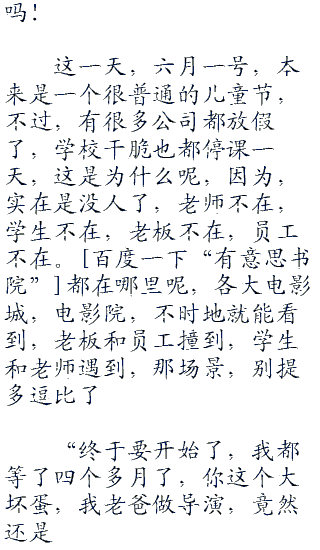 吗！
这一天，六月一号，本
来是一个很普通的儿童节，
不过，有很多公司都放假
了，学校干脆也都停课一
天，这是为什么呢，因为，
实在是没人了，老师不在，
学生不在，老板不在，员工
不在。[百度一下“有意思书
院”]都在哪里呢，各大电影
城，电影院，不时地就能看
到，老板和员工撞到，学生
和老师遇到，那场景，别提
多逗比了
“终于要开始了，我都
等了四个多月了，你这个大
坏蛋，我老爸做导演，竟然
还是